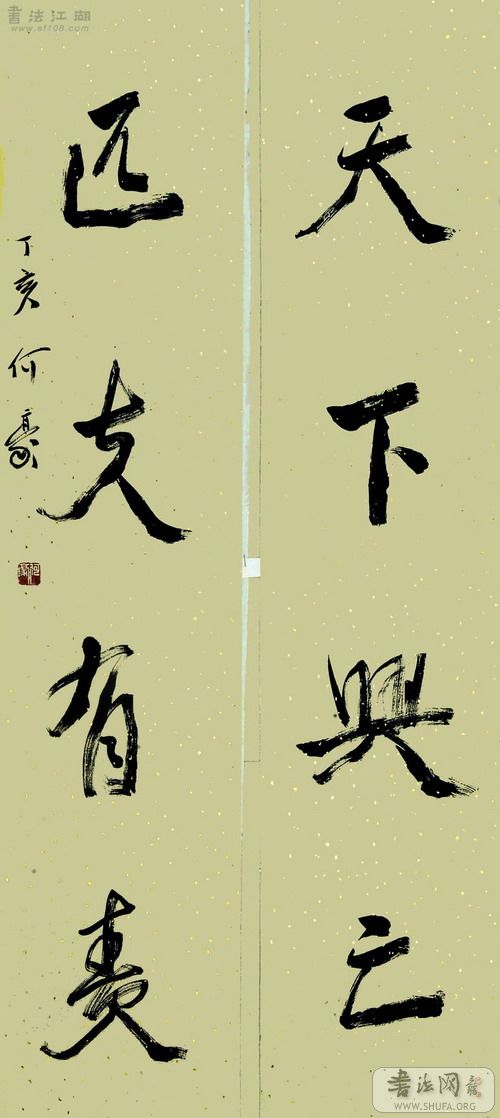 天下興亡
匹夫有責
丁亥 何豪
書法江湖
www.sf108.com
書法网
WWW.SHUFA.ORG